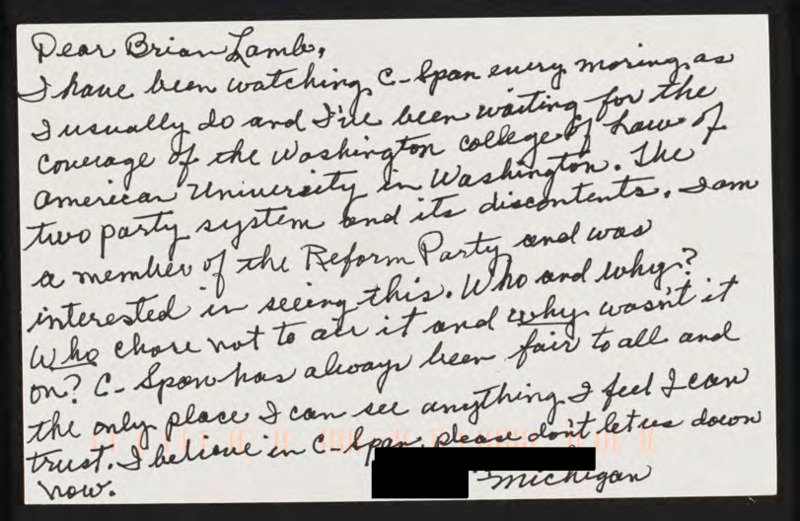 Dear Brian Lamb,
I have been watching C-Span every moring as
I usually do and I've been waiting for the
coverage of the Washington college of Law of
American University in Washington. The
two party system and its discontents. I am
a member of the Reform Party and was
interested in seeing this. Who and why?
Who chose not to air it and why wasn't it
on? C-Span has always been fair to all and
the only place I can see anything I feel I can
trust. I believe in C-Span, please don't let us down
now.
Michigan